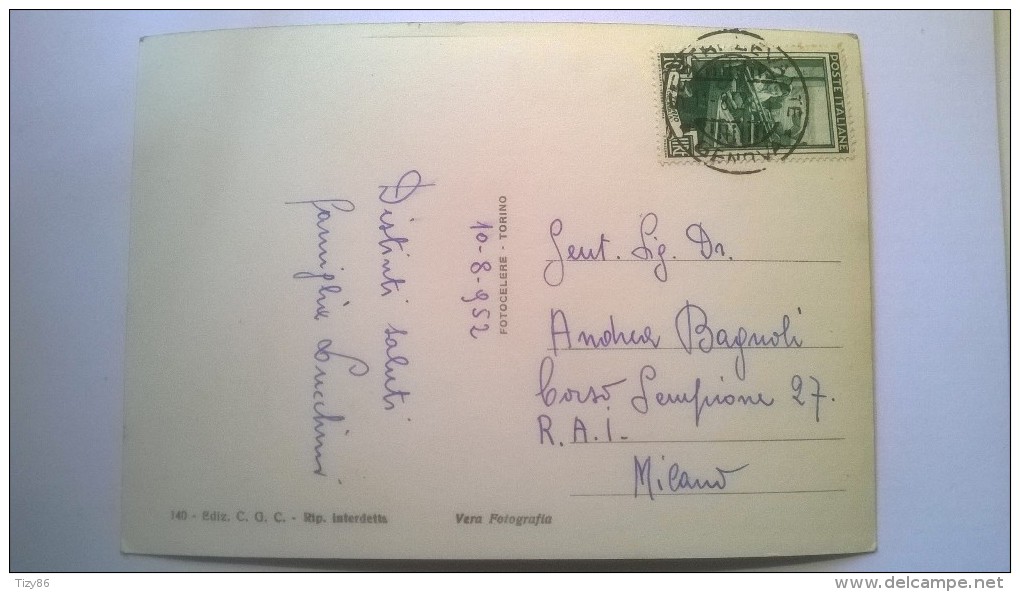 POSTE ITALIANE
LIRE
GENOVA
Distinti saluti
famiglia Lucchini
10-8-952
FOTOCELERE - TORINO
Gent. Sig. Dr.
Andrea Bagnoli
Corso Sempione 27.
R.A.I.
Milano
140 - Ediz. C. G. C. - Rip. interdetta
Vera Fotografia
Tizy86
www.delcampe.net